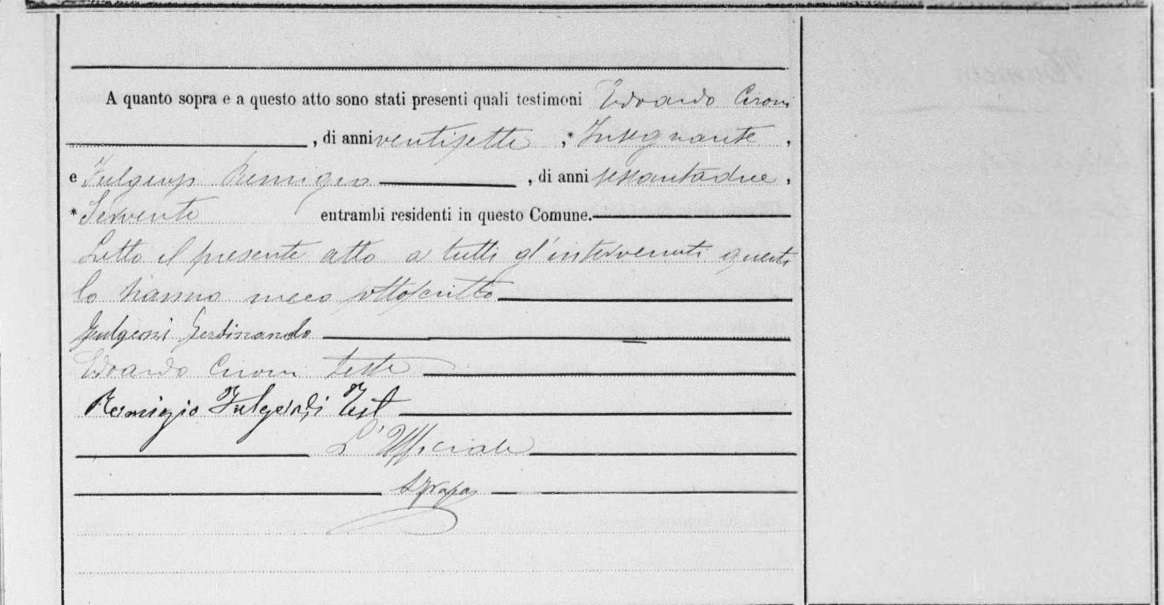 A quanto sopra e a questo atto sono stati presenti quali testimoni Edoardo Cironi
, di anni ventisette , * Insegnante ,
e Fulgenzi Remigio , di anni sessantadue ,
* Servente entrambi residenti in questo Comune.
Letto il presente atto a tutti gl'intervenuti questi
lo hanno meco sottoscritto
Ferdinando
Edoardo Cironi teste
Remigio Fulgenzi Test
L'Ufficiale